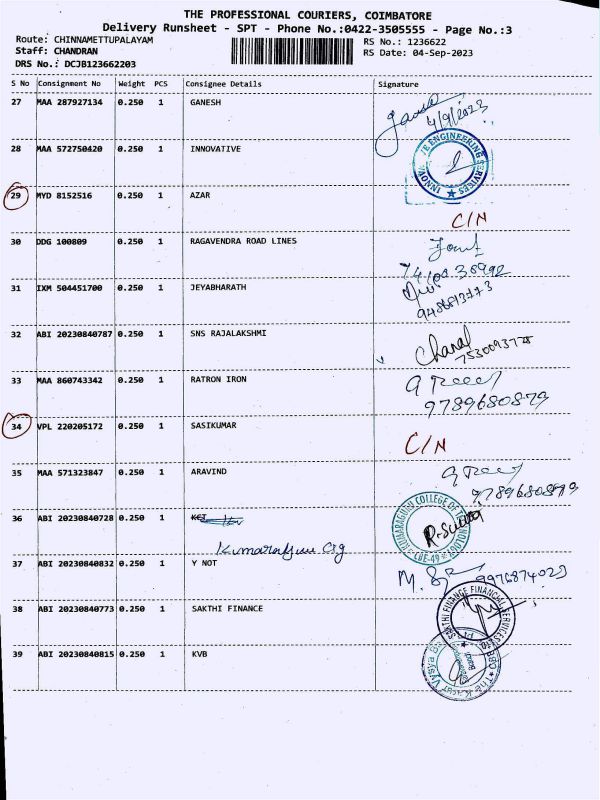 THE PROFESSIONAL COURIERS, COIMBATORE
Delivery Runsheet - SPT - Phone No.:0422-3505555 - Page No.:3
Route: CHINNAMETTUPALAYAM RS No.: 1236622
Staff: CHANDRAN RS Date: 04-Sep-2023
DRS No.: DCJB123662203
S No Consignment No Weight PCS Consignee Details Signature
27 MAA 287927134 0.250 1 GANESH
4/9/2023
28 MAA 572750420 0.250 1 INNOVATIVE
ENGINEERING SERVICES
29 MYD 8152516 0.250 1 AZAR
C/N
30 DDG 100809 0.250 1 RAGAVENDRA ROAD LINES
31 IXM 504451700 0.250 1 JEYABHARATH
32 ABI 20230840787 0.250 1 SNS RAJALAKSHMI
33 MAA 860743342 0.250 1 RATRON IRON
9789680879
34 VPL 220205172 0.250 1 SASIKUMAR
C/N
35 MAA 571323847 0.250 1 ARAVIND
36 ABI 20230840728 0.250 1 KCT
KUMARAGURU COLLEGE OF
CBE-49
37 ABI 20230840832 0.250 1 Y NOT
9976874023
38 ABI 20230840773 0.250 1 SAKTHI FINANCE
SAKTHI FINANCE FINANCIAL SERVICES
39 ABI 20230840815 0.250 1 KVB
The Karur Vysya